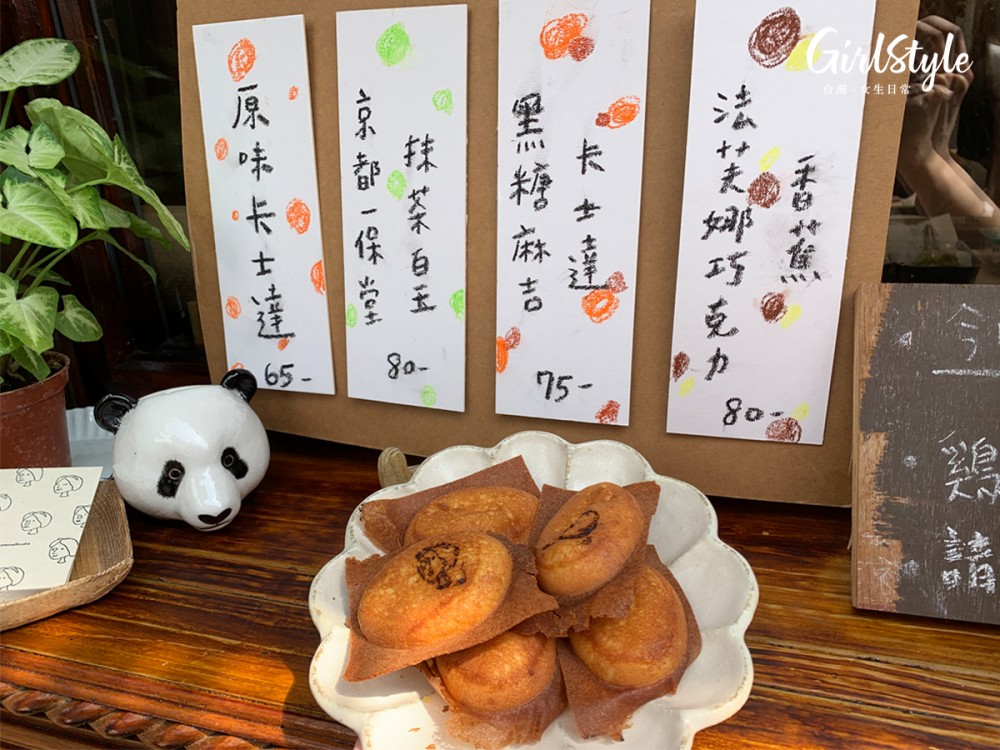 原味卡士達
65-
京都一保堂
抹茶白玉
80-
黑糖麻吉
卡士達
75-
法芙娜巧克力
香蕉
80-
GirlStyle
台灣．女生日常
今